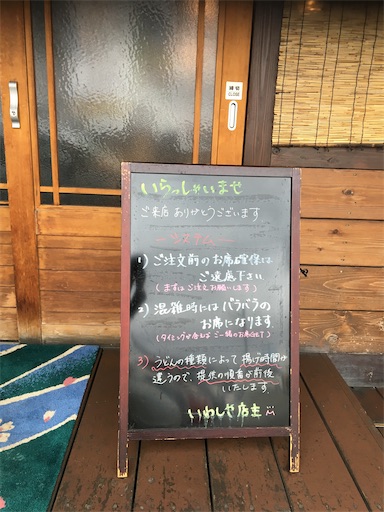 締切
CLOSE
いらっしゃいませ
ご来店 ありがとうございます
ーシステムー
1) ご注文前のお席確保は
ご遠慮下さい
(まずはご注文お願いします)
2) 混雑時にはバラバラの
お席になります
(タイミングが合えばご一緒のお席迄も可)
3) うどんの種類によって揚げ時間が
違うので、提供の順番が前後
いたします
いわしや店主